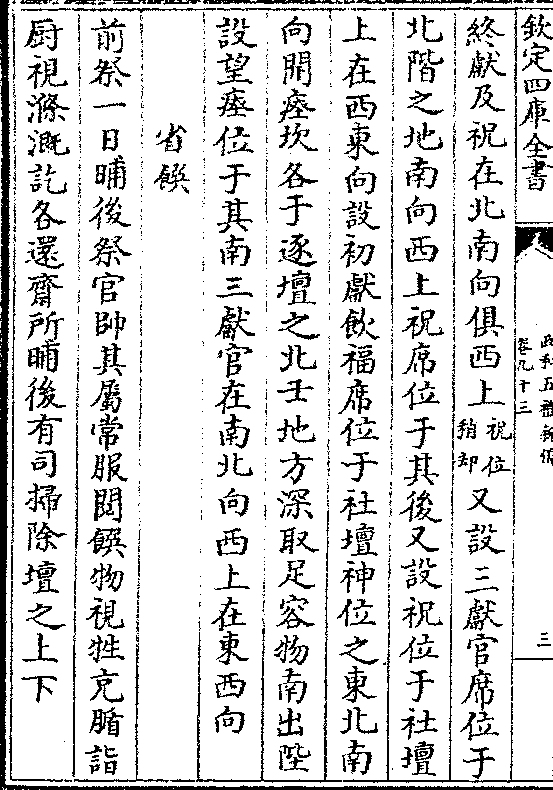 欽定四庫全書
政和五禮新儀
卷九十三
三
終獻及祝在北南向俱西上祝位稍却又設三獻官席位于
北階之地南向西上祝席位于其後又設祝位于社壇
上在西東向設初獻飲福席位于社壇神位之東北南
向開瘞坎各于逐壇之北壬地方深取足容物南出陛
設望瘞位于其南三獻官在南北向西上在東西向
省饌
前祭一日晡後祭官帥其屬常服閱饌物視牲充腯詣
厨視滌溉訖各還齋所晡後有司掃除壇之上下